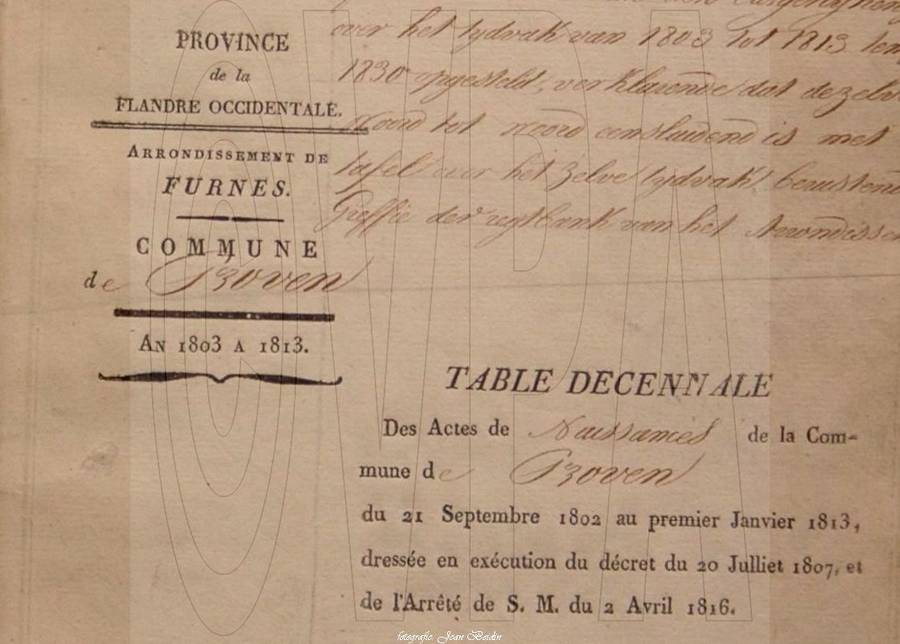 over het tydvak van 1803 tot 1813
1830 opgesteld, verklarende dat dezelve
woord tot woord eensluidend is met
tafel over het zelve tydvak berustend
Griffie der regtbank van het Arrondisse
PROVINCE
de la
FLANDRE OCCIDENTALE.
ARRONDISSEMENT DE
FURNES.
COMMUNE
de Proven
AN 1803 A 1813.
TABLE DECENNALE
Des Actes de Naissances de la Com-
mune de Proven
du 21 Septembre 1802 au premier Janvier 1813,
dressée en exécution du décret du 20 Julliet 1807, et
de l'Arrêté de S. M. du 2 Avril 1816.
fotografie: Joan Beidin